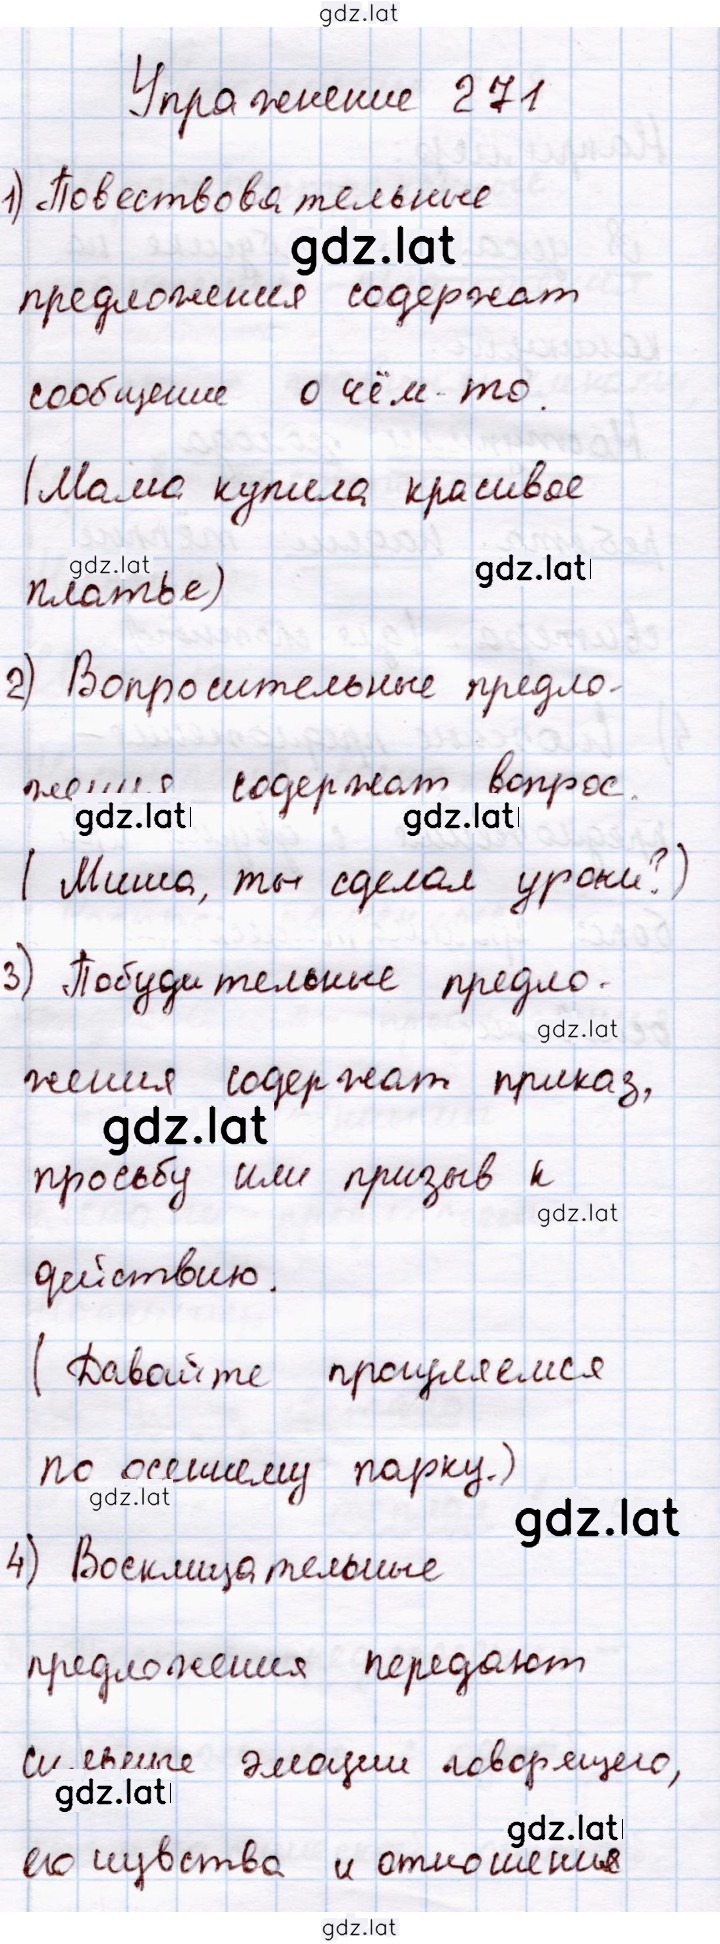 gdz.lat
Упражнение 271
1) Повествовательные
gdz.lat
предложения содержат
сообщение о чём-то.
(Мама купила красивое
gdz.lat gdz.lat
платье)
2) Вопросительные предло-
жения содержат вопрос.
gdz.lat gdz.lat
( Миша, ты сделал уроки?)
3) Побудительные предло-
gdz.lat
жения содержат приказ,
gdz.lat
просьбу или призыв к
gdz.lat
действию.
( Давайте прогуляемся
по осеннему парку.)
gdz.lat gdz.lat
4) Восклицательные
предложения передают
сильные эмоции говорящего,
gdz.lat gdz.lat
его чувства и отношения
gdz.lat